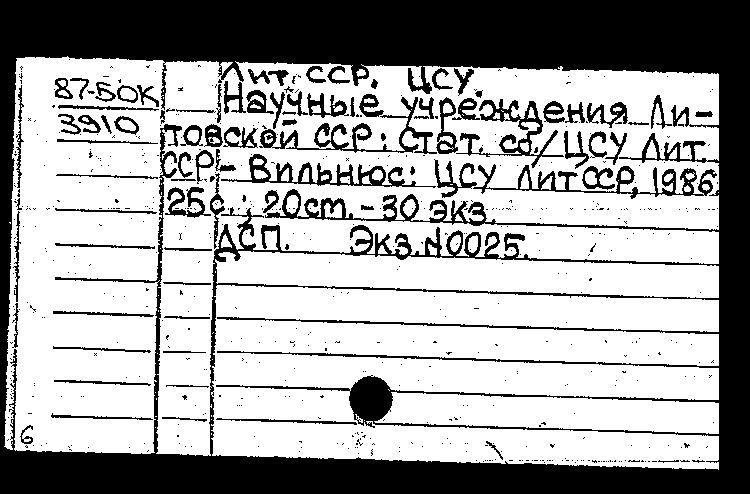 Лит. ССР. ЦСУ.
87-5ОК Научные учреждения Ли-
3910 товской ССР: Стат. сб./ЦСУ Лит.
ССР. - Вильнюс: ЦСУ ЛитССР, 1986.
25 с.; 20ст. - 30 экз.
ДСП. Экз.N0025.
6